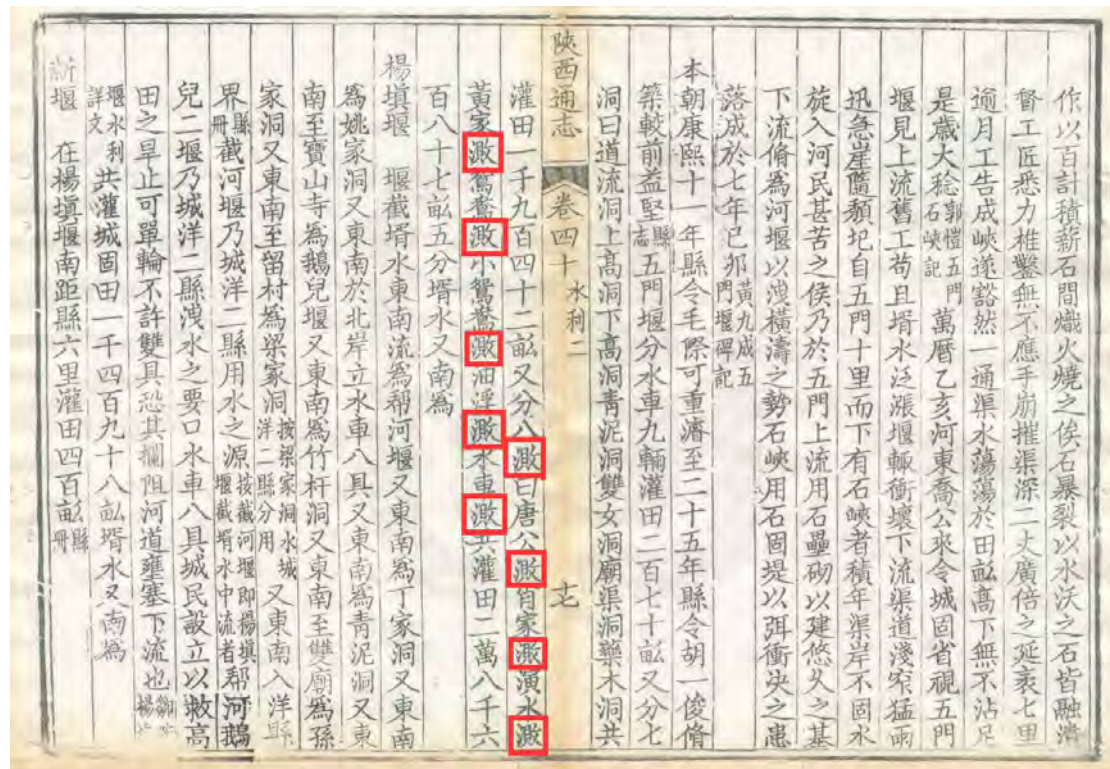 作以百計積薪石間熾火燒之俟石暴裂以水沃之石皆融潰
督工匠悉力椎鑿無不應手崩摧渠深二丈廣倍之延袤七里
逾月工告成峽遂豁然一通渠水蕩蕩於田畝高下無不沾足
是歲大稔郭愷五門石峽記萬曆乙亥河東喬公來令城固省視五門
堰見上流舊工苟且壻水泛漲堰輙衝壞下流渠道淺窄猛雨
迅急崖隨頽圯自五門十里而下有石峽者積年渠岸不固水
旋入河民甚苦之侯乃於五門上流用石壘砌以建悠久之基
下流脩爲河堰以洩橫濤之勢石峽用石固堤以弭衝决之患
落成於七年己卯黃九成五門堰碑記
本朝康熙十一年縣令毛際可重濬至二十五年縣令胡一俊脩
築較前益堅縣志五門堰分水車九輛灌田二百七十畝又分七
洞曰道流洞上高洞下高洞青泥洞雙女洞廟渠洞藥木洞共
陝西通志 卷四十 水利二 十七
灌田一千九百四十二畝又分八曰唐公家演水
黃家鴛鴦小鴛鴦油浮水車共灌田二萬八千六
百八十七畝五分壻水又南爲
楊塡堰 堰截壻水東南流爲帮河堰又東南爲丁家洞又東南
爲姚家洞又東南於北岸立水車八具又東南爲青泥洞又東
南至寶山寺爲鵝兒堰又東南爲竹杆洞又東南至雙廟爲孫
家洞又東南至留村爲梁家洞按梁家洞水城洋二縣分用又東南入洋縣
界縣冊截河堰乃城洋二縣用水之源按截河堰即楊塡堰截壻水中流者帮河鵝
兒二堰乃城洋二縣洩水之要口水車八具城民設立以救高
田之旱止可單輪不許雙具恐其攔阻河道壅塞下流也
堰水利詳文共灌城固田一千四百九十八畝壻水又南爲
新堰 在楊塡堰南距縣六里灌田四百畝縣冊